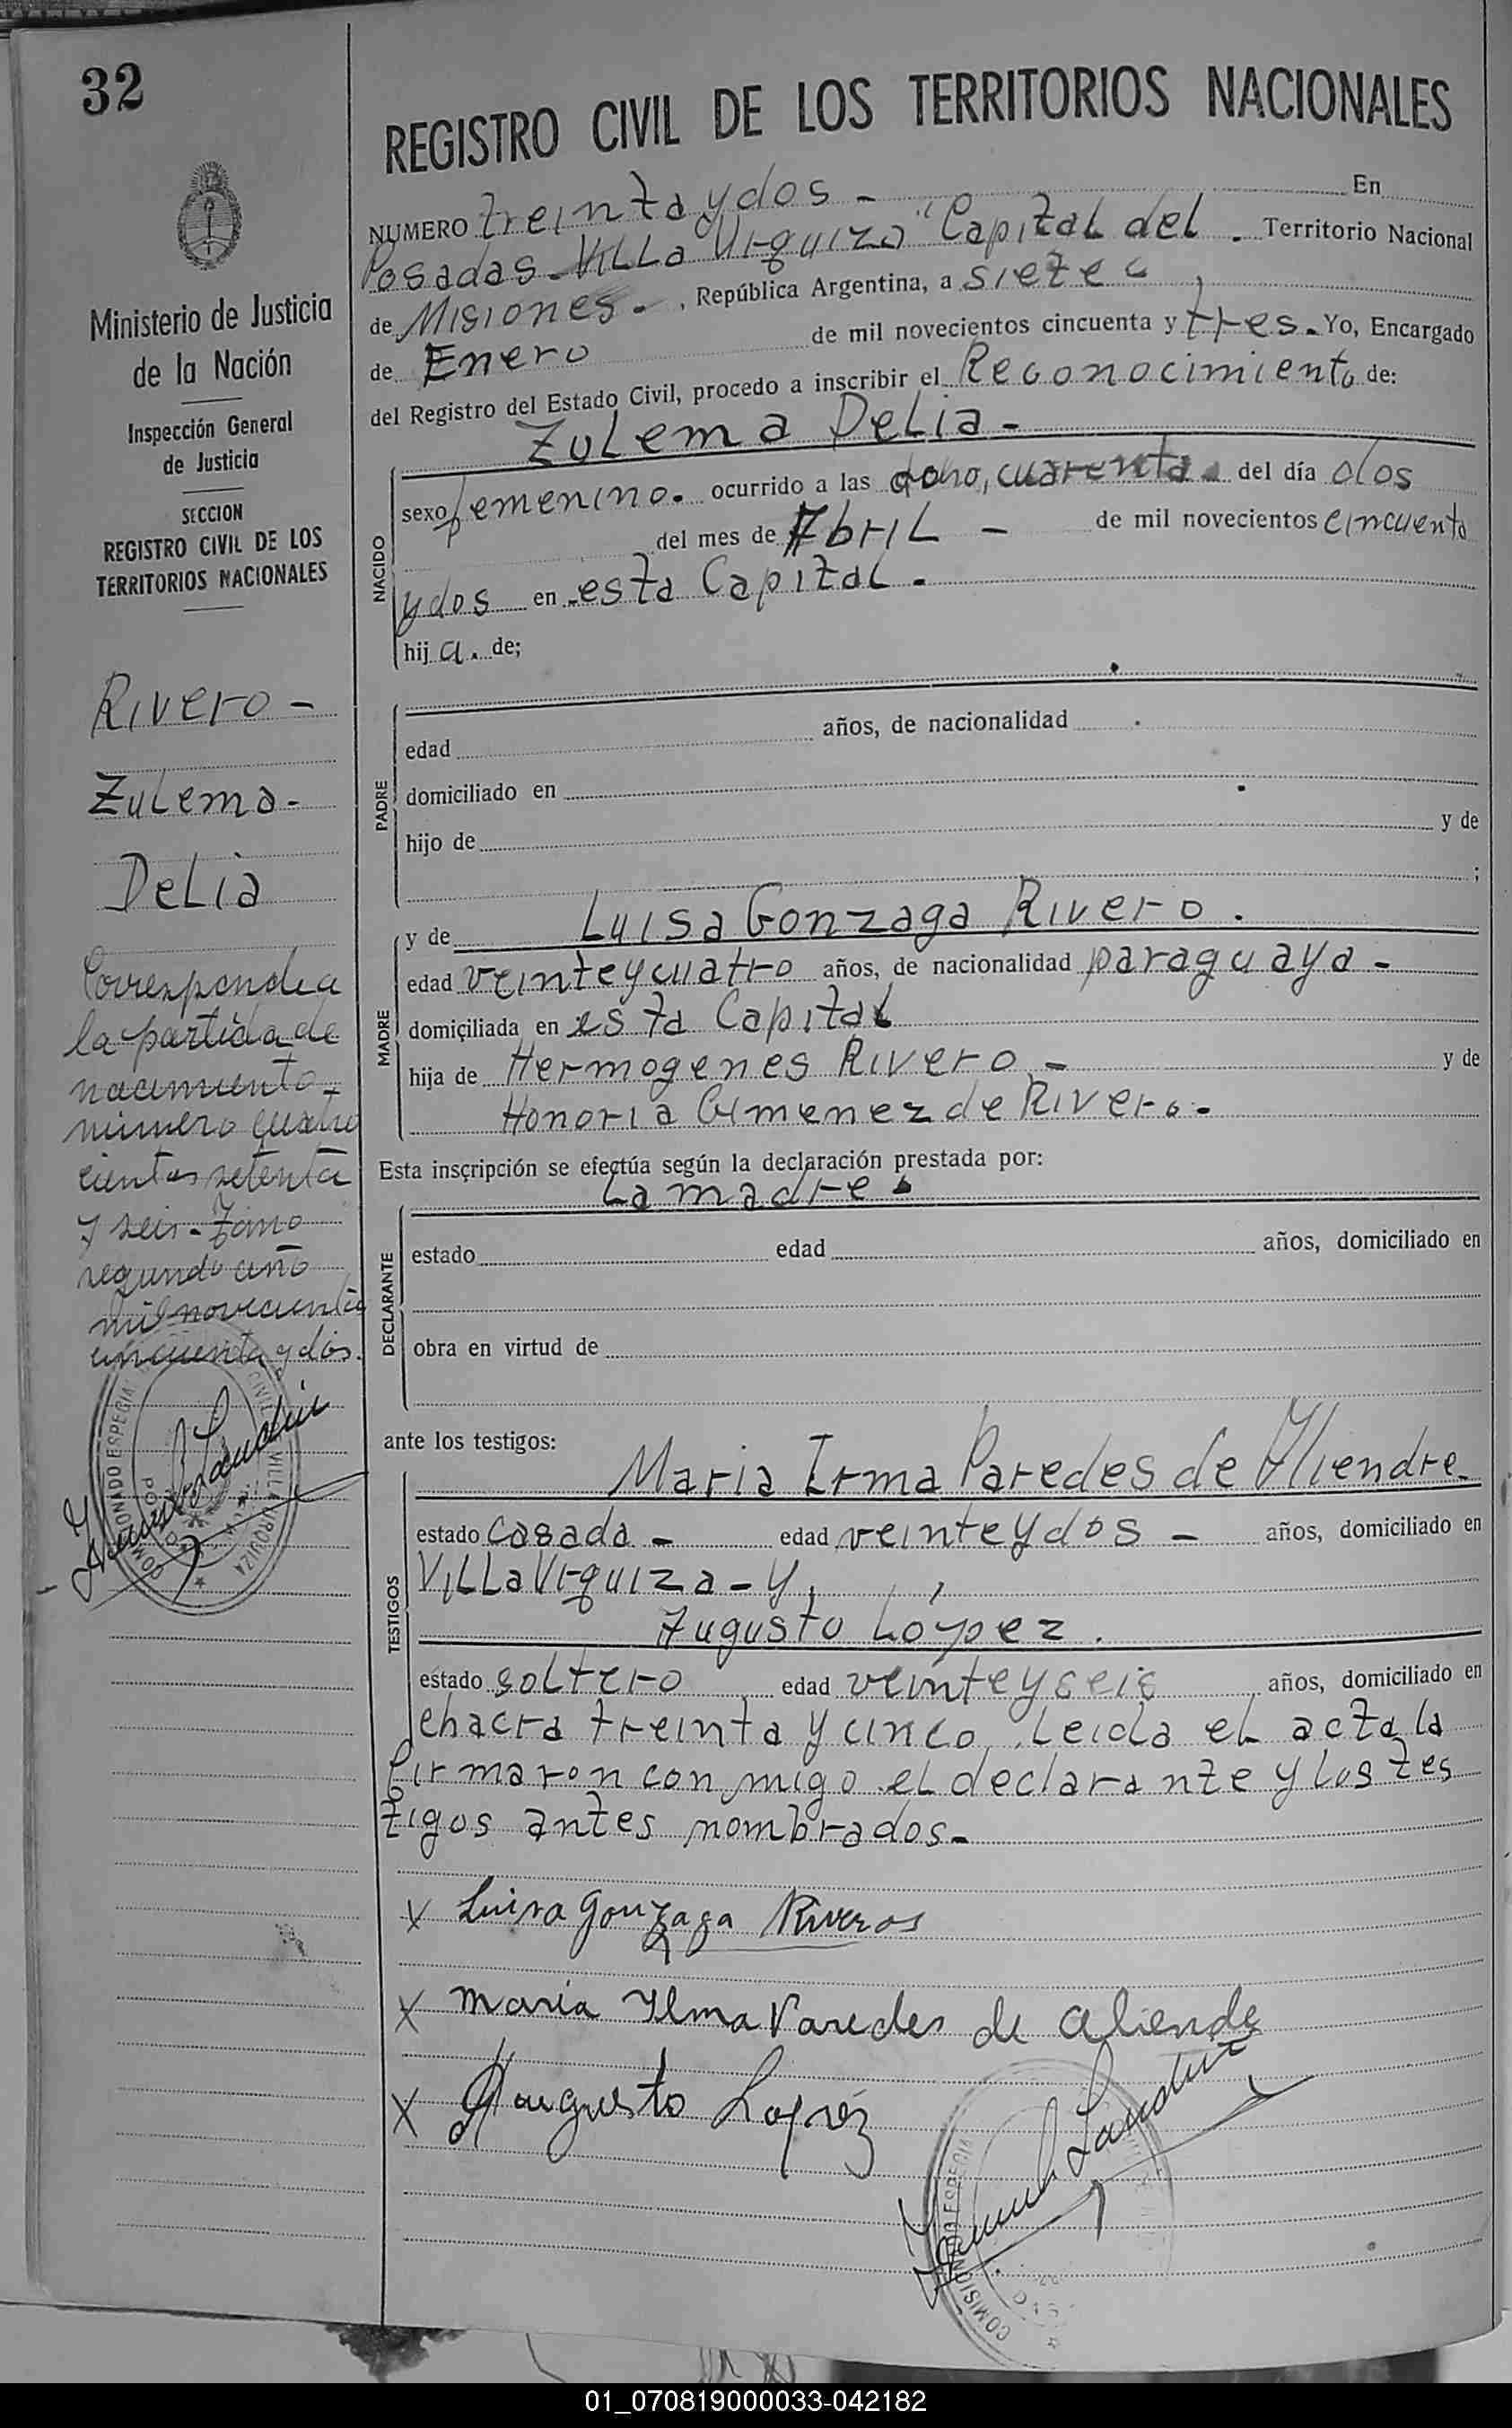 32
Ministerio de Justicia
de la Nación
Inspección General
de Justicia
SECCION
REGISTRO CIVIL DE LOS
TERRITORIOS NACIONALES
Rivero -
Zulema -
Delia
Corresponde a
la partida de
nacimiento
número cuatro
cientos setenta
y seis - Tomo
segundo año
mil novecientos
cincuenta y dos.
REGISTRO CIVIL DE LOS TERRITORIOS NACIONALES
NUMERO treinta y dos - En
Posadas - Villa Urquiza "Capital del . Territorio Nacional
de Misiones - . República Argentina, a siete
de Enero de mil novecientos cincuenta y tres. Yo, Encargado
del Registro del Estado Civil, procedo a inscribir el Reconocimiento de:
Zulema Delia -
NACIDO
sexo femenino. ocurrido a las cuarenta del día dos
del mes de Abril - de mil novecientos cincuenta
y dos en esta Capital.
hija. de;
PADRE
edad años, de nacionalidad
domiciliado en
hijo de y de
;
MADRE
y de Luisa Gonzaga Rivero.
edad veinte y cuatro años, de nacionalidad paraguaya -
domiciliada en esta Capital
hija de Hermogenes Rivero - y de
Honoria Gimenez de Rivero -
Esta inscripción se efectúa según la declaración prestada por:
La madre.
DECLARANTE
estado edad años, domiciliado en
obra en virtud de
ante los testigos:
TESTIGOS
Maria Irma Paredes de Aliendre
estado casada - edad veinte y dos - años, domiciliado en
Villa Urquiza - y,
Augusto López.
estado soltero edad veinte y seis años, domiciliado en
chacra treinta y cinco. Leida el acta la
firmaron con migo el declarante y los tes
tigos antes nombrados.-
x Luisa Gonzaga Riveros
x Maria Ylma Paredes de Aliende
x Augusto Lopéz
01_070819000033-042182